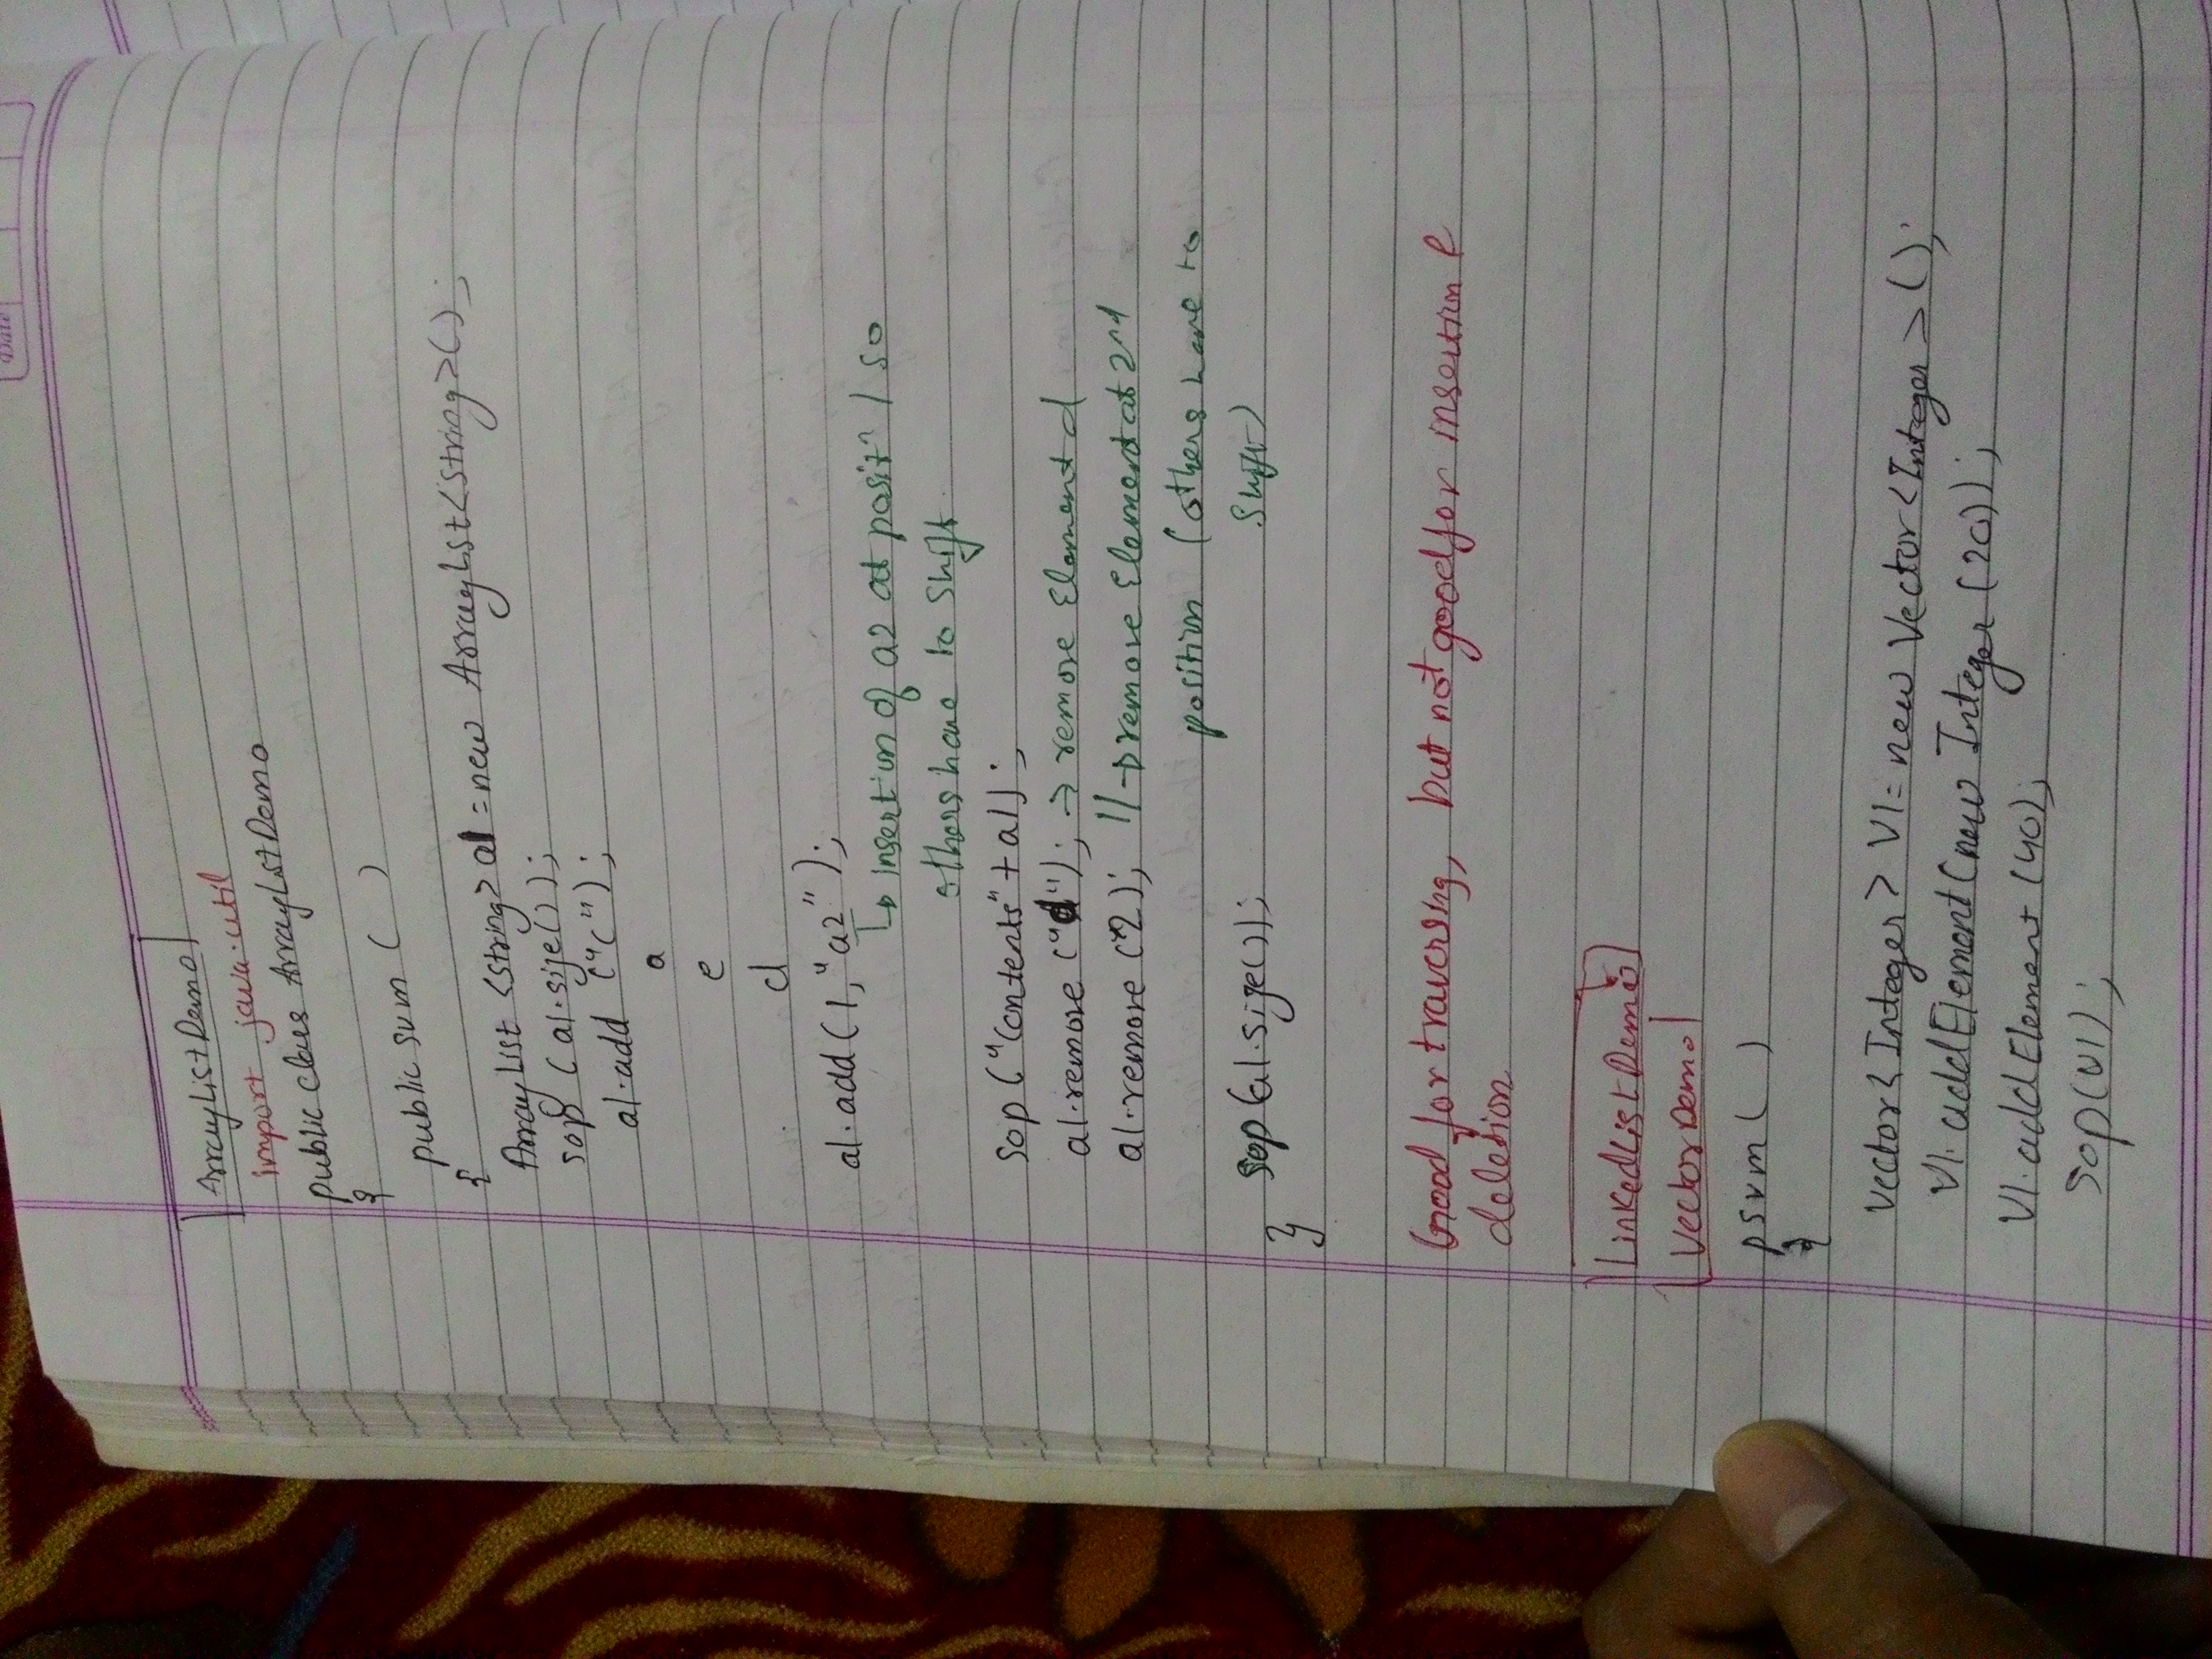 Date
ArrayListDemo
import java.util
public class ArrayListDemo
{
public svm ( )
{
ArrayList <String> al = new ArrayList<String>();
sop (al.size());
al.add ("c");
a
e
d
al.add(1,"a2");
↳ insertion of a2 at positn 1 so
others have to shift.
sop ("Contents" + al);
al.remove ("d"); → remove Element d
al.remove (2); //→ remove Element at 2nd
position (others have to
shift)
sop(al.size());
}
Good for traversing, but not good for insertion &
deletion
LinkedListDemo
VectorDemo
psvm ( )
{
Vector<Integer> V1 = new Vector<Integer>();
V1.addElement(new Integer (20));
V1.addElement (40);
Sop(V1);